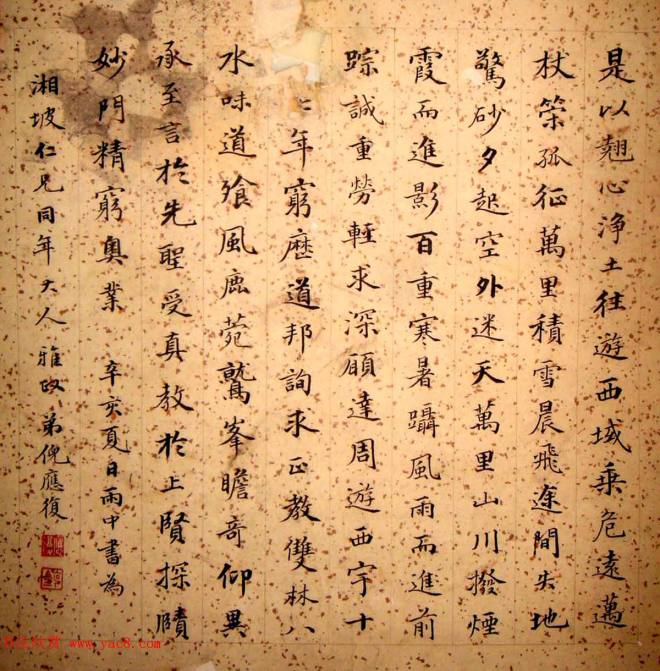 是以翹心浄土往遊西域乗危遠邁
杖策孤征萬里積雪晨飛途間失地
驚砂夕起空外迷天萬里山川撥煙
霞而進影百重寒暑躡風雨而進前
踪誠重勞輕求深願達周遊西宇十
七年窮歷道邦詢求正教雙林八
水味道飡風鹿菀鷲峯瞻奇仰異
承至言於先聖受真教於上賢探賾
妙門精窮奧業 辛亥夏日雨中書為
湘坡仁兄同年大人雅政 弟倪應復
www.yac8.com